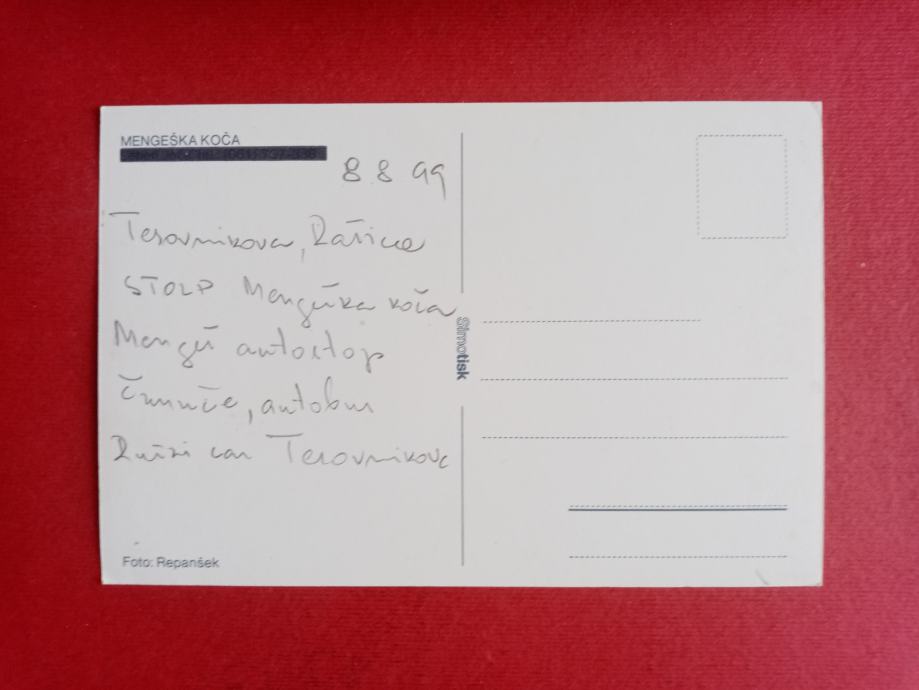 MENGEŠKA KOČA
8 8 99
Terovnikova, Rašica
STOLP Mengeška koča
Mengeš autostop
Črnuče, autobus
Ruski car Terovnikova
Simotisk
Foto: Repanšek